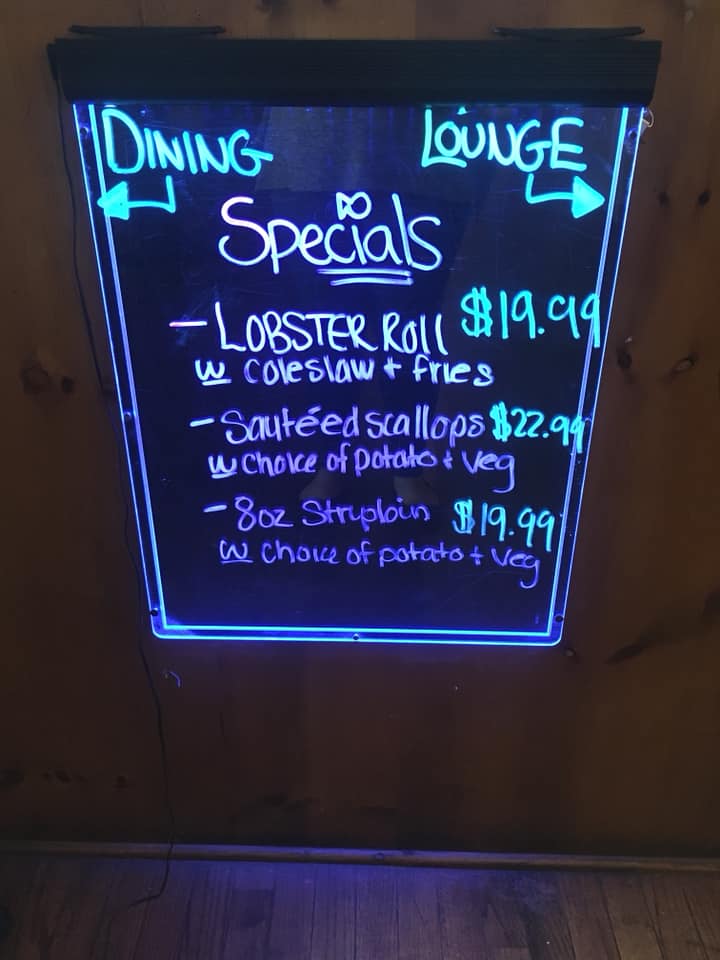 DINING LOUNGE
Specials
- LOBSTER ROLL $19.99
w coleslaw + fries
- Sautéed scallops $22.99
w Choice of potato + veg
- 8oz Striploin $19.99
w choice of potato + veg